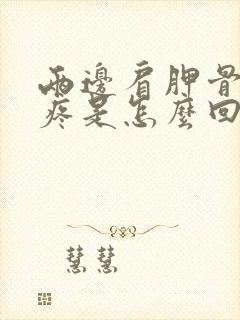 兩邊肩胛骨
疼是怎麼回
慧慧